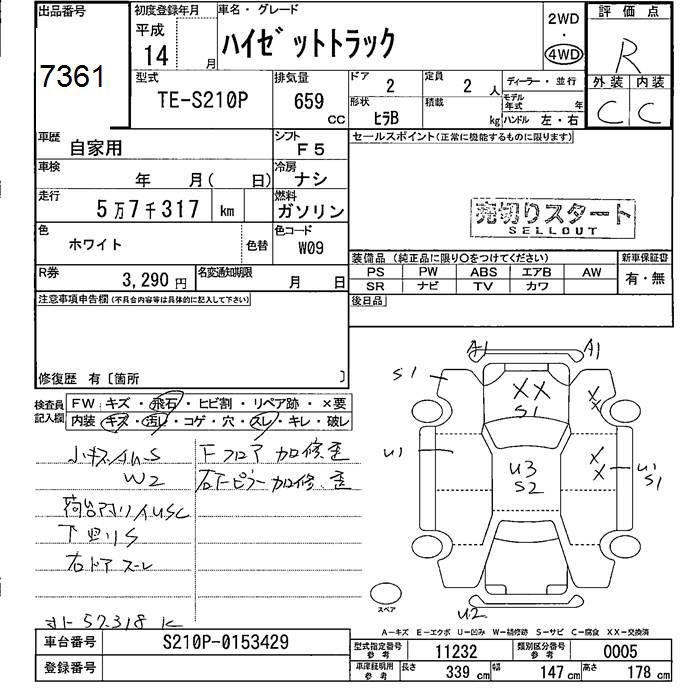 出品番号
7361
初度登録年月
平成
14 月
車名・グレード
ハイゼットトラック
2WD
・
4WD
評価点
R
外装 内装
C C
型式
TE-S210P
排気量
659
CC
ドア
2
定員
2 人
ディーラー・並行
形状
ヒラB
積載
kg
モデル年式 年
ハンドル 左・右
車歴
自家用
シフト
F5
セールスポイント(正常に機能するものに限ります)
車検
年 月( 日)
冷房
ナシ
走行
5万7千317 km
燃料
ガソリン
売切りスタート
SELLOUT
色
ホワイト
色替
色コード
W09
装備品(純正品に限り○をつけてください)
新車保証書
PS PW ABS エアB AW
有・無
SR ナビ TV カワ
R券
3,290 円
名変通知期限
月 日
後日品
注意事項申告欄(不具合内容等は具体的に記入して下さい)
修復歴 有〔箇所 〕
検査員記入欄
FW キズ・飛石・ヒビ割・リペア跡・×要
内装 キズ・汚レ・コゲ・穴・スレ・キレ・破レ
小キズAUS
W2
Fフロア加修歪
右Fピラー加修、歪
下廻りS
右ドアスレ
A1 A1
S1
XX
S1
X
X
U1
U3
S2
X
X
U1
S1
U2
スペア
A-キズ E-エクボ U-凹み W-補修跡 S-サビ C-腐食 XX-交換済
車台番号
S210P-0153429
登録番号
型式指定番号
参考
11232
類別区分番号
参考
0005
車庫証明用
参考
長さ 339 cm 幅 147 cm 高さ 178 cm